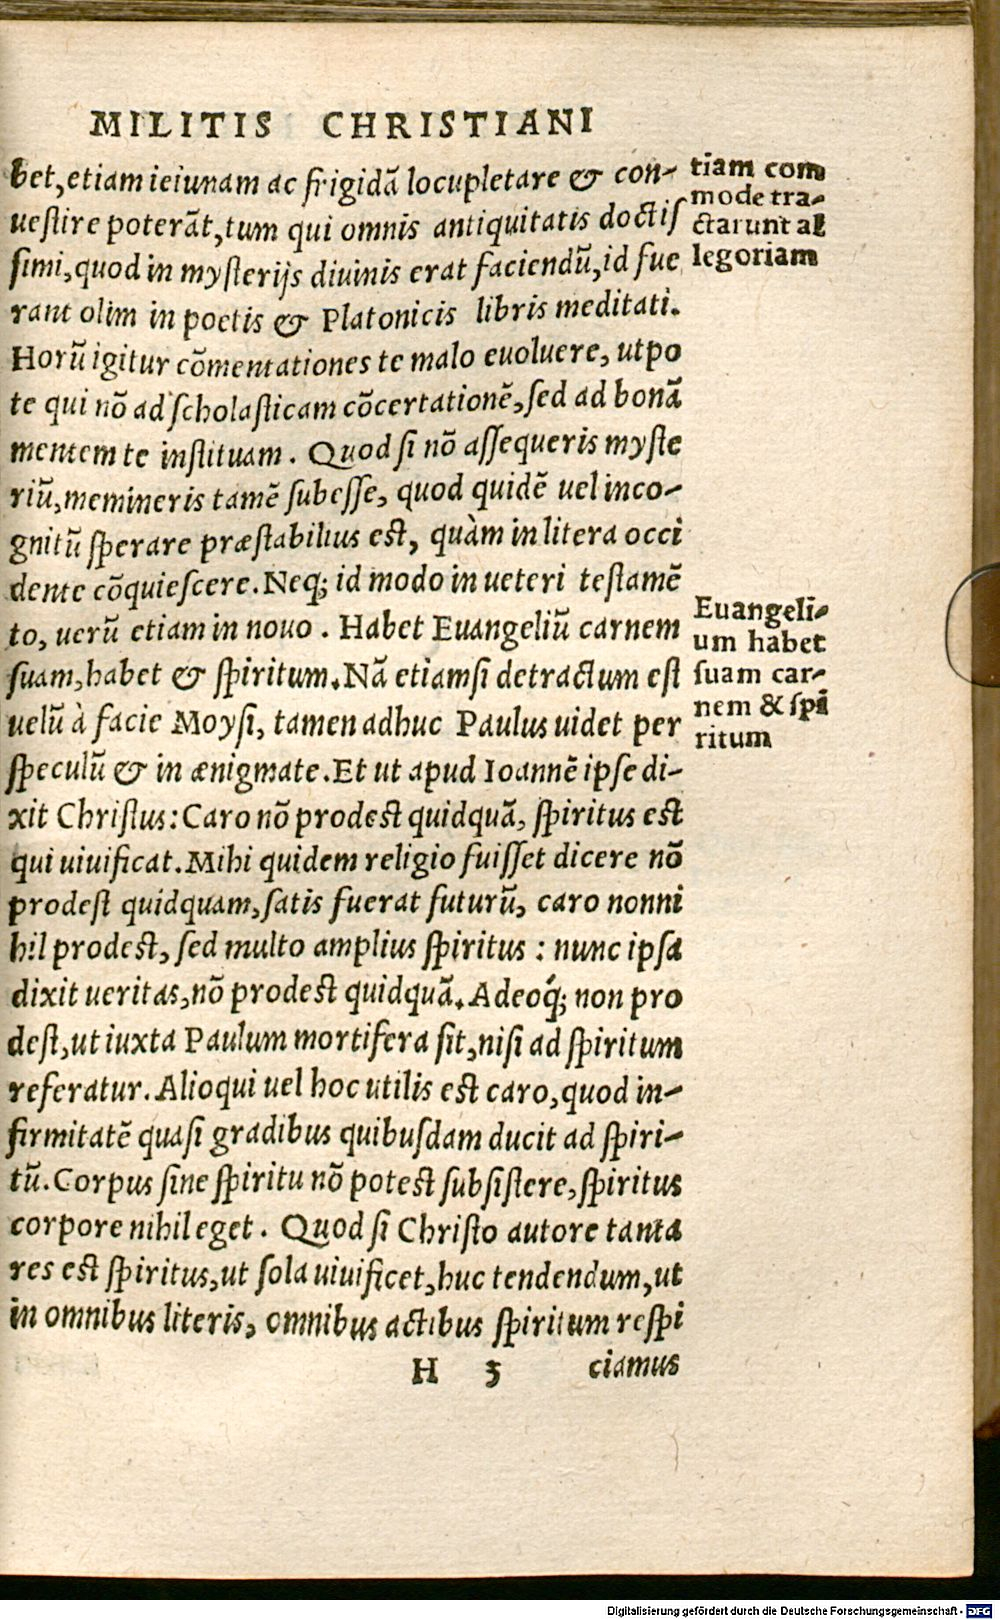 MILITIS CHRISTIANI
bet, etiam ieiunam ac frigidã locupletare & con-
uestire poterãt, tum qui omnis antiquitatis doctis
simi, quod in mysterijs diuinis erat faciendũ, id fue
rant olim in poetis & Platonicis libris meditati.
Horũ igitur cõmentationes te malo euoluere, utpo
te qui nõ ad scholasticam cõcertationẽ, sed ad bonã
mentem te instituam. Quod si nõ assequeris myste
riũ, memineris tamẽ subesse, quod quidẽ uel inco-
gnitũ sperare præstabilius est, quàm in litera occi
dente cõquiescere. Neq; id modo in ueteri testamẽ
to, uerũ etiam in nouo. Habet Euangeliũ carnem
suam, habet & spiritum. Nã etiamsi detractum est
uelũ à facie Moysi, tamen adhuc Paulus uidet per
speculũ & in ænigmate. Et ut apud Ioannẽ ipse di-
xit Christus: Caro nõ prodest quidquã, spiritus est
qui uiuificat. Mihi quidem religio fuisset dicere nõ
prodest quidquam, satis fuerat futurũ, caro nonni
hil prodest, sed multo amplius spiritus: nunc ipsa
dixit ueritas, nõ prodest quidquã. Adeoq́; non pro
dest, ut iuxta Paulum mortifera sit, nisi ad spiritum
referatur. Alioqui uel hoc utilis est caro, quod in-
firmitatẽ quasi gradibus quibusdam ducit ad spiri-
tũ. Corpus sine spiritu nõ potest subsistere, spiritus
corpore nihil eget. Quod si Christo autore tanta
res est spiritus, ut sola uiuificet, huc tendendum, ut
in omnibus literis, omnibus actibus spiritum respi
H 3 ciamus
tiam com
mode tra-
ctarunt al
legoriam
Euangeli-
um habet
suam car-
nem & spi
ritum
Digitalisierung gefördert durch die Deutsche Forschungsgemeinschaft - DFG